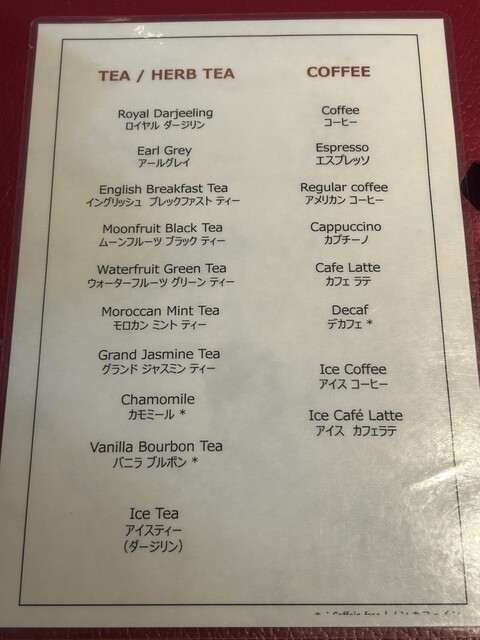 TEA / HERB TEA
Royal Darjeeling
ロイヤル ダージリン
Earl Grey
アールグレイ
English Breakfast Tea
イングリッシュ ブレックファスト ティー
Moonfruit Black Tea
ムーンフルーツ ブラック ティー
Waterfruit Green Tea
ウォーターフルーツ グリーン ティー
Moroccan Mint Tea
モロカン ミント ティー
Grand Jasmine Tea
グランド ジャスミン ティー
Chamomile
カモミール *
Vanilla Bourbon Tea
バニラ ブルボン *
Ice Tea
アイスティー
（ダージリン）
COFFEE
Coffee
コーヒー
Espresso
エスプレッソ
Regular coffee
アメリカン コーヒー
Cappuccino
カプチーノ
Cafe Latte
カフェ ラテ
Decaf
デカフェ *
Ice Coffee
アイス コーヒー
Ice Café Latte
アイス カフェラテ